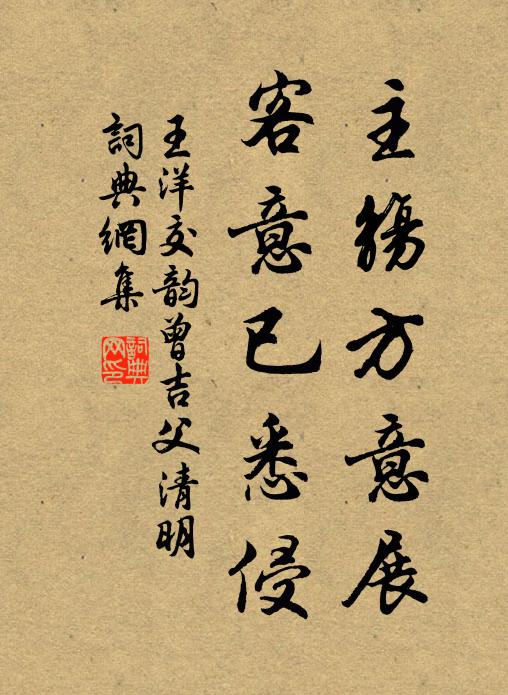 主觴方意展
客意已悉侵
王洋交韵曾吉父清明
詞典網集
詞典
网印